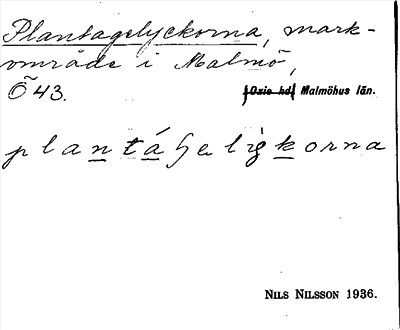 Plantagelyckorna, mark-
område i Malmö,
Ö 43. Oxie hd Malmöhus län.
plantáʒeligkorna
NILS NILSSON 1936.